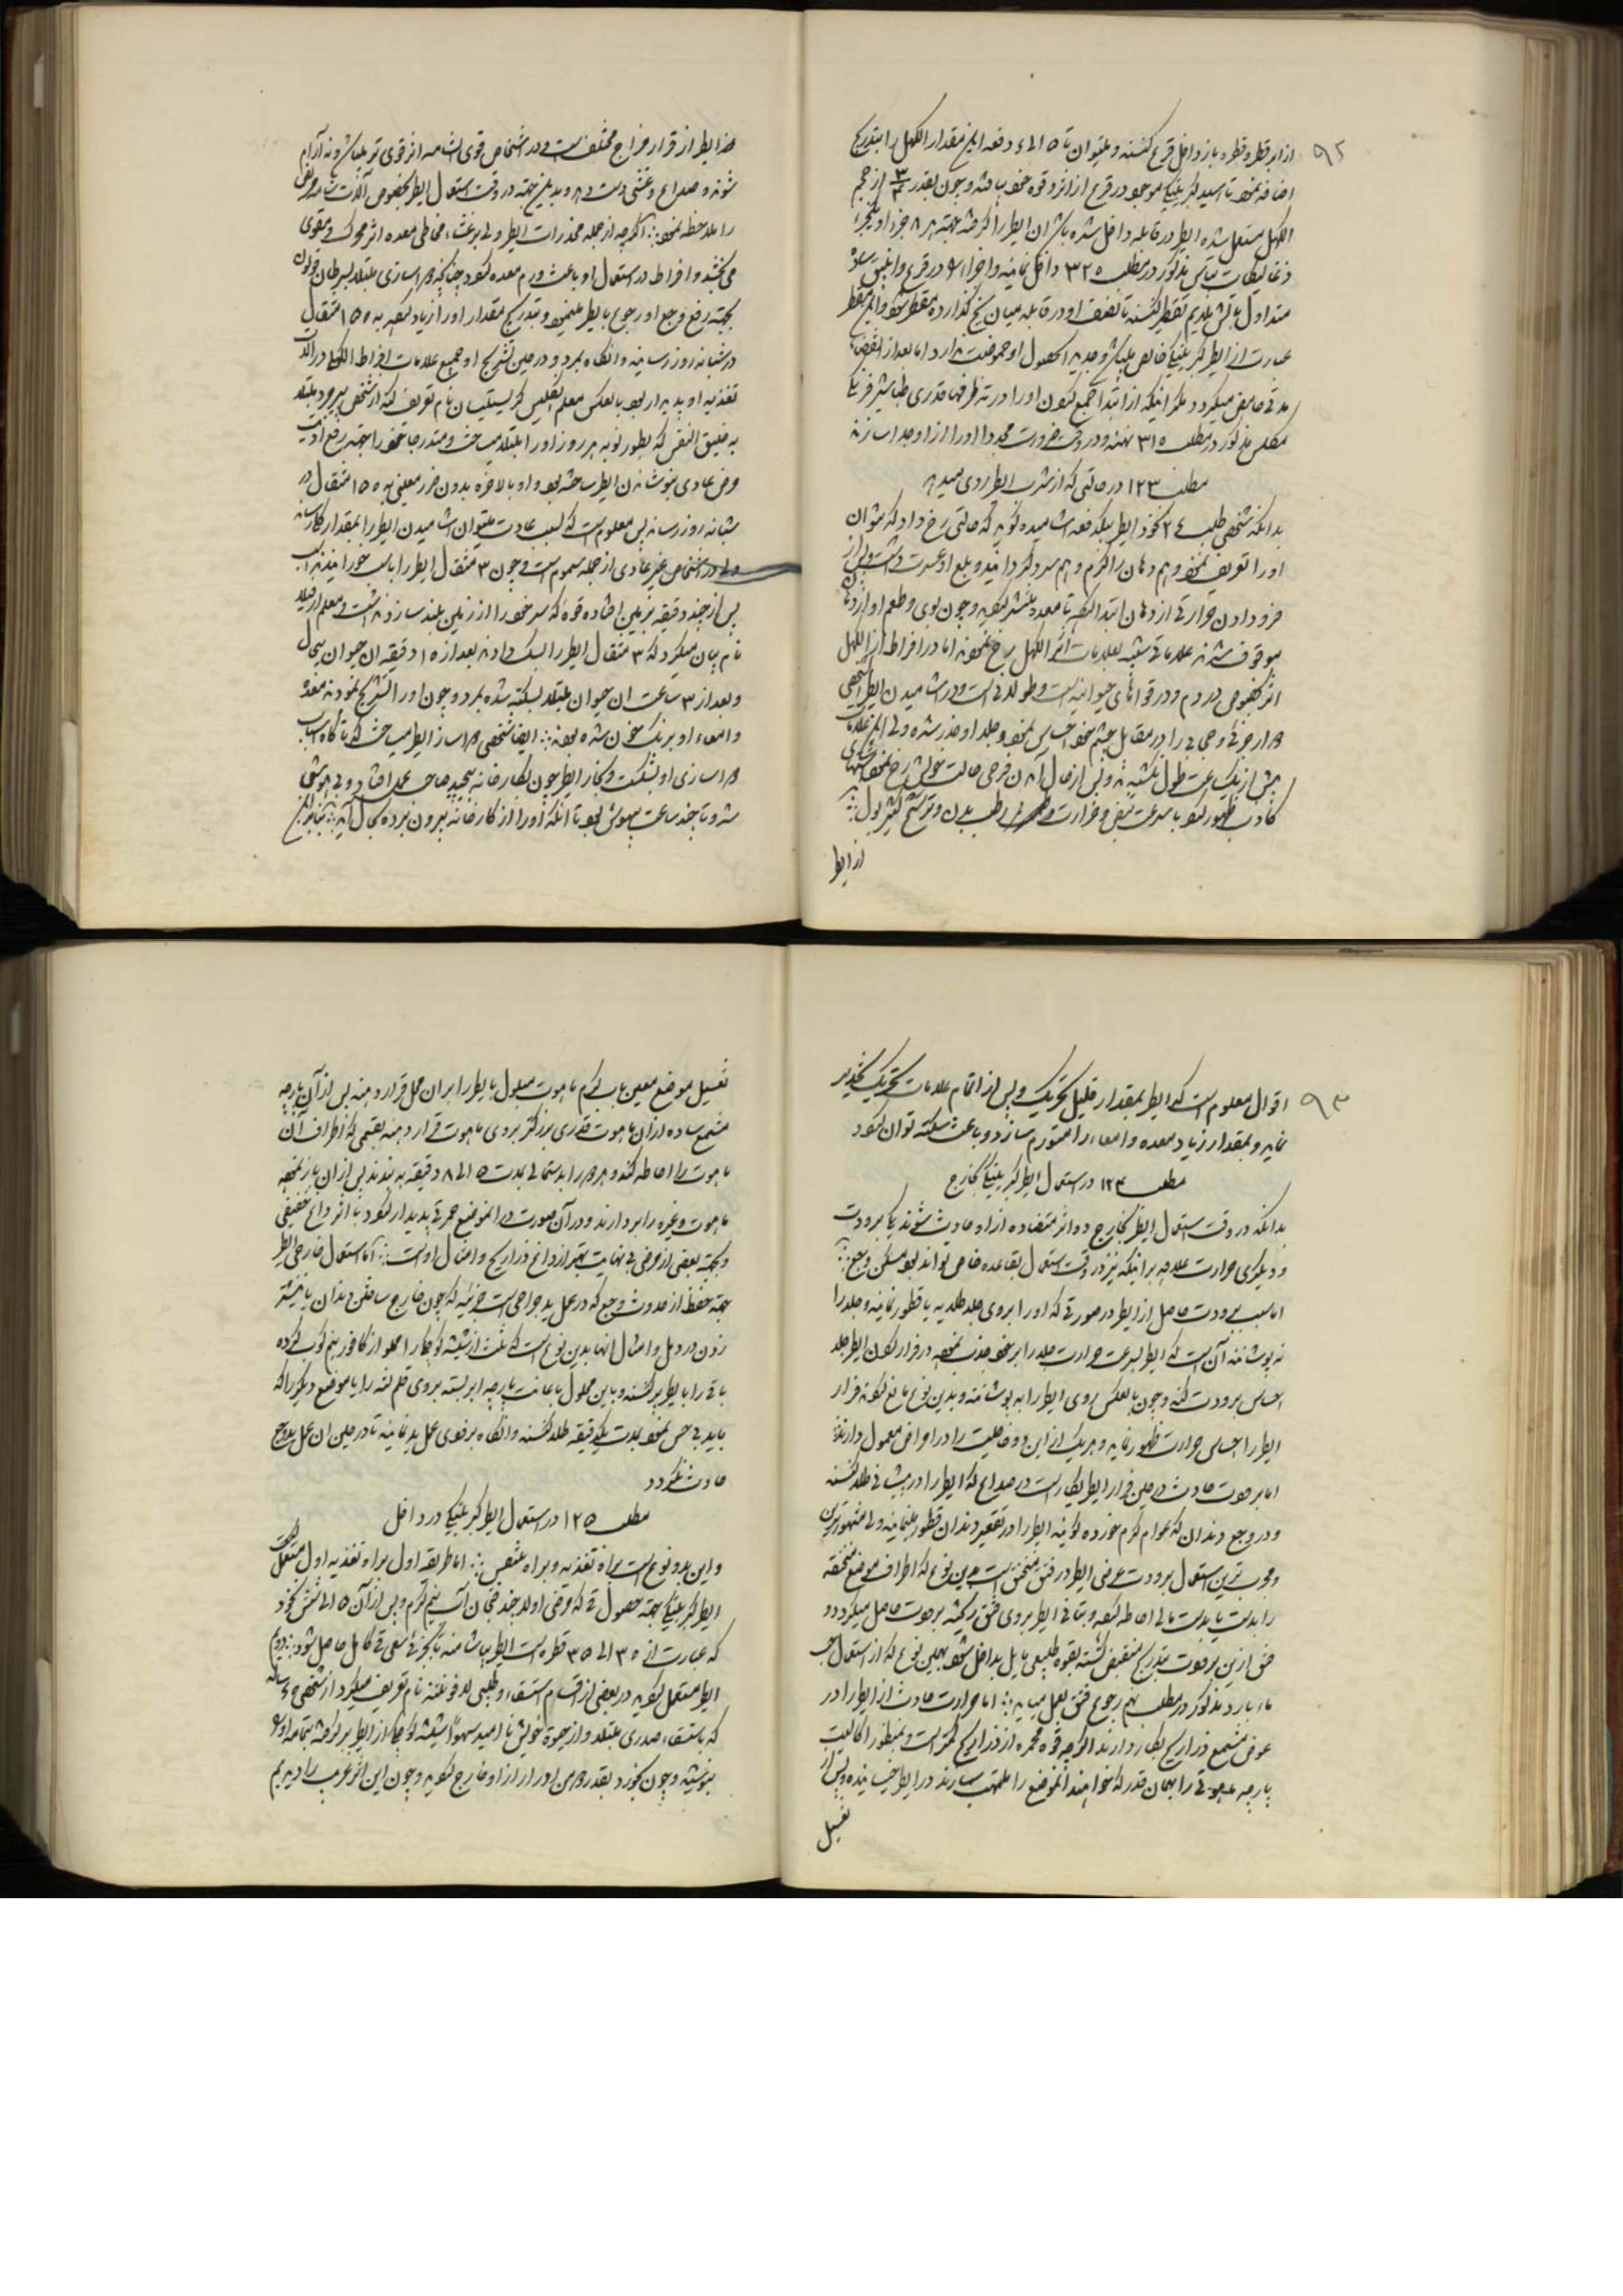 ۹۲
از ابر قطره قطره باز داخل قرع کنند و میتوان تا ۵ الی ۶ دفعه این مقدار الکهل را بتدریج
اضافه نمود تا اسید کبریتیک موجود در قرع از اثر و قوه خود بیافتد و چون بقدر از حجم
الکهل مستعمل شده ایطر در قابله داخل شده باشد ان ایطر را گرفته بجهة هر ۸ جزو او یکجزء
مذکور در مطلب ۳۲۵ داخل نمایند و اجزاء را در قرع و انبیق
متداول بآتش ملایم تقطیر کنند تا نصف او در قابله میان یخ گذارده مقطر شود و این مقطر
عبارت از ایطر کبریتیک خالص میباشد و جدید الحصول او حموضت ندارد اما بعد از انقضاء
مدتی حامض میگردد مگر آنکه از ابتدا جمع کردن او را در ته ظرفها قدری طباشیر فرنگی
مکلس مذکور در مطلب ۳۱۵ نهند و در وقت ضرورت مجددا او را از او جدا سازند
مطلب ۱۲۳ در حالتی که از شرب ایطر روی میدهد
بدانکه شخصی طلب ۲۴ نخود ایطر بیکدفعه آشامیده گوید که حالتی رخ داد که نتوان
او را تعریف نمود و هم دهان را گرم و هم سرد گرداند و بلع او عسرت داشت و پس از
فرو دادن حرارتی از دهان ابتدا کرده تا معده منتشر گردید و چون بوی و طعم او از دهان
موقوف شدند علاماتی شبیه بعلامات اثر الکهل رخ نمودند اما در افراط از الکهل
اثر بخصوص در دم و در قوانهای حیوانیه است و طولانی است و در آشامیدن ایطر شخصی
هر ارخوتی و حجابی را در مقابل چشم خود احساس نموده و جلد او خدر شده ولی این علامات
بیش از یک ساعت طول نکشیدند و پس از حال آمدن فرحی حالت خوش رخ نمود
کاذب ظهور کرد با سرعت نبض و حرارت و رطب بدن و ترشح کثیر بول
از ایطر
اثر ایطر از قرار مزاج مختلف است و در اشخاص قوی الشامه اثر قوی تر میباشد و نه آرام
شوند و صداع و غشی دست دهد و بدین جهة در وقت استعمال ایطر بخصوص آلات شامه مریض
را ملاحظه نمود اگر چه از جمله مخدرات ایطر ولی بر غشاء مخاطی معده اثر محرک و مقوی
می بخشد و افراط در استعمال او باعث ورم معده گردد چنانچه دواسازی مبتلا بسرطان
بجهة رفع وجع او رجوع بایطر مینمود و بتدریج مقدار او را زیاد کرده به ۱۵۰ مثقال
در شبانه روز رسانید وانگاه بمرد و در حین تشریح او جمیع علامات افراط الکهل در آلات
تغذیه او پدیدار بود بالعکس معلم انگلیس کریستیسن نام تعریف کند از شخص پیر مرد مبتلا
به ضیق النفس که بطور نوبه هر روز او را مبتلا میساخت و متدرجا خود را بجهة رفع اذیت
مرض عادی بنوشیدن ایطر ساخته بود و او بالاخره بدون ضرر معین به ۱۵۰ مثقال در
شبانه روز رسانید پس معلوم است که بسبب عادت میتوان آشامیدن ایطر را بمقدار رسانید
ولی در اشخاص غیر عادی از جمله سموم است و چون ۳ مثقال ایطر را باسب خورانیدند آن
پس از چند دقیقه بزمین افتاده قوه که سر خود را از زمین بلند سازد نداشت و معلم
نام بیان میکرد که ۳ مثقال ایطر را بسگ دادند بعد از ۱۵ دقیقه ان حیوان بیحال
و بعد از ۳ ساعت ان حیوان مبتلا بسکته شده بمرد و چون او را تشریح نمودند معده
و امعاء او برنک خون شده بودند ایضا شخصی دواساز ایطر میساخت که ناگاه اسباب
دواسازی او بشکست و بخار ایطر چون بکارخانه پیچید صاحب عمل افتاد و بی هوش
شد و تا چند ساعت بیهوش بود تا آنکه او را از کارخانه بیرون برده بحال آمد بنابراین
۹۳
اقوال معلوم است که ایطر بمقدار قلیل تحریک و پس از اتمام علامات تحریک تخدیر
نماید و بمقدار زیاد معده و امعاء را متورم سازد و باعث سکته توان گردد
مطلب ۱۲۴ در استعمال ایطر کبریتیک بخارج
بدانکه در وقت استعمال ایطر بخارج دو اثر متضاده از او حادث شوند یکی برودت
و دیگری حرارت علاوه بر اینکه نیز در وقت استعمال بقاعده خاص تواند بود مسکن وجع
اما سبب برودت حاصل از ایطر در صورتی که او را بروی جلد طلا یا قطور نمایند و جلد را
نپوشانند آن است که ایطر بسرعت حرارت جلد را بر خود جذب نموده در فرار کردن ایطر جلد
احساس برودت کند و چون بالعکس روی ایطر را بپوشانند و بدین نوع مانع گردند فرار
ایطر را احساس حرارت ظهور نماید و هر یک از این دو خاصیت را در امراض معمول دارند
اما برودت حادث در حین فرار ایطر بکار است در صداع که ایطر را در پیشانی طلا کنند
و در وجع دندان که عوام کرم خورده گویند ایطر را در تقعیر دندان قطور مینمایند ولی مشهورترین
و مجرب ترین استعمال برودت عرضی ایطر در فتق مختنق است بدین نوع که اطراف موضع مختنقه
را بدست یا بدستمالی احاطه کرده و بتانی ایطر بروی فتق ریخته برودت حاصل میگردد و
فتق ازین برودت بتدریج منقبض گشته بقوه طبیعی مایل بداخل شود بهمین نوع که از استعمال
ماء بارد مذکور در مطلب نهم رجوع فتق بعمل میاید اما حرارت حادث از ایطر را در
عوض مشمع ذراریح بکار دارند اگر چه قوه محمره از ذراریح کمتر است و بمنظور
پارچه ماهوتی را بهمان قدر که خواهند انموضع را ملتهب سازند در ایطر خیسانیده و پس از
تغسیل
تغسیل موضع معین باب گرم ماهوت مبلول بایطر را بران محل قرار دهند پس از آن پارچه
مشمع ساده از آن ماهوت قدری بزرگتر بروی ماهوت قرار دهند بقسمی که اطراف آن
ماهوت را احاطه کند و هر دو را بدستمالی بمدت ۵ الی ۸ دقیقه به بندند پس از ان باز نموده
ماهوت و غیره را بردارند و در آن صورت در انموضع حمرتی پدیدار گردد با اثر داغ خفیفی
و بجهة بعضی از مرضی بی نهایت بهتر از داغ ذراریح و امثال اوست اما استعمال خارجی ایطر
بجهة حفظ از حدوث وجع که در عمل ید جراحی است جزئیه که چون خارج ساختن دندان یا نیشتر
زدن در دمل و امثال انها بدین نوع است که ثلث از شیشه کوچکی را مملو از کافور نیم کوب کرده
باقی را بایطر پر کنند و باین محلول باعانت پارچه ابر بسته بروی قلم لثه را یا موضع دیگر را که
باید بی حس نمود بمدت یکدقیقه طلا کنند و انگاه برفوری عمل ید نمایند تا در حین ان عمل ید وجع
حادث نگردد
مطلب ۱۲۵ در استعمال ایطر کبریتیک در داخل
و این بدو نوع است براه تغذیه و براه تنفس اما طریقه اول براه تغذیه اول مستعمل
ایطر کبریتیک بجهة حصول قی که مرضی اولا چند فنجان آب نیم گرم و پس از آن ۵ الی شش نخود
که عبارت از ۳۰ الی ۳۵ قطره است ایطر بیاشامند تا بجزئی سعی قی کامل حاصل شود دوم
ایطر مستعمل گردید در بعضی از اقسام استسقاء و طبیبی نام تعریف میکرد از شخصی ساله
که باستسقاء صدری مبتلا و از حیوة خویش نا امید سهوا شیشه کوچکی از ایطر پر گرفته بتمامه او را
بنوشید و چون بخورد بقدر دو من ادرار از او خارج گردید و چون این اثر غریب را دیدیم